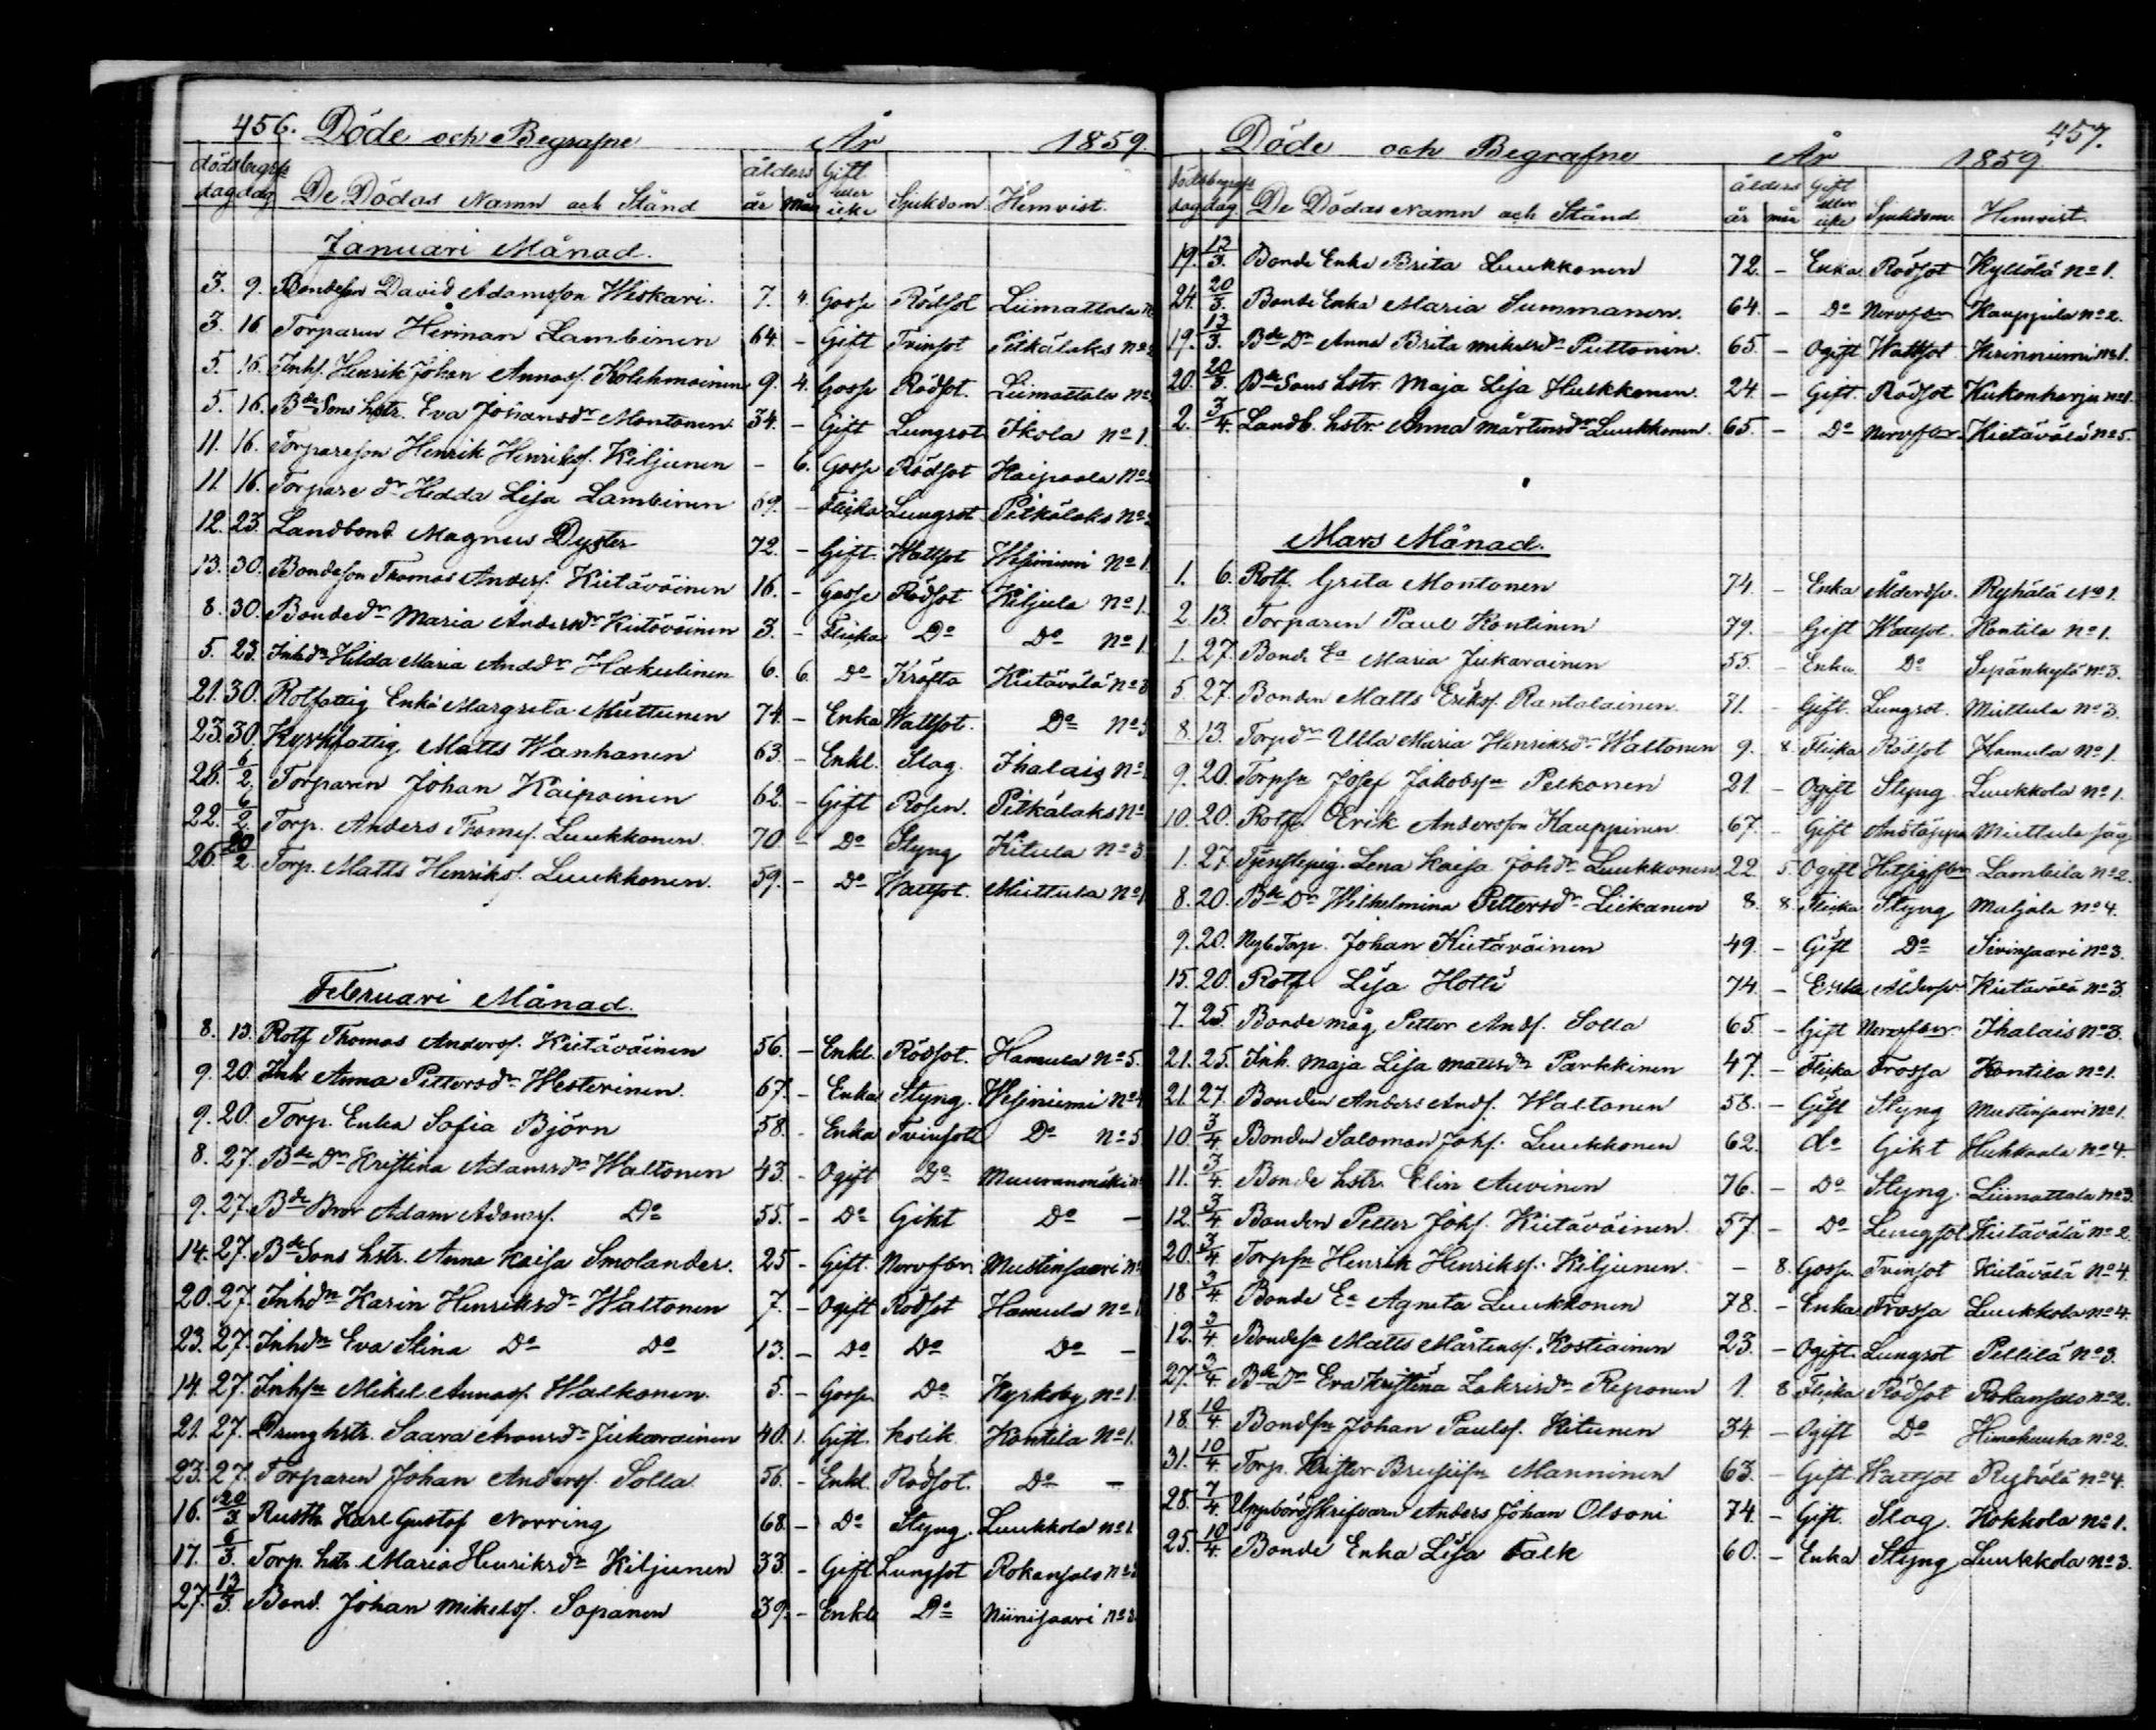 456. Döde och Begrafne År 1859
döds dag begrfs dag De Dödas Namn och Stånd ålders år mån Gift eller icke Sjukdom Hemvist.
Januari Månad.
3. 9. Bondeson David Adamsson Wiskari. 7. 4. Gosse Rödsot Liimattala
3. 16. Torparen Herman Lambinen 64. - Gift Tvinsot Pitkälaks No
5. 16. Inhs. Henrik Johan Annasf. Kolehmainen 9. 4. Gosse Rödsot. Liimattala No
5. 16. Bde Sons hstr. Eva Johansdr Montonen 34. - Gift Lungsot Ikola No 1.
11. 16. Torpareson Henrik Henriksf. Kiljunen - 6. Gosse Rödsot Haipaala No
11. 16. Torpare dr Hedda Lisa Lambinen 59. - Flicka Lungsot Pitkälaks No
12. 23. Landbond Magnus Dyster 72. - Gift. Wattsot Wesiniemi No 1
13. 30. Bondeson Thomas Andersf. Kietäväinen 16. - Gosse Rödsot Kiljula No 1.
8. 30. Bonde dr Maria Andersdr Kietäväinen 3. - Flicka Do Do No 1
5. 23. Inhdr Hilda Maria Anddr Hakulinen 6. 6. Do Kräfta Kietävälä No 3
21. 30. Rotfattig Enka Margreta Miettunen 74. - Enka Wattsot. Do No 3
23. 30. Kyrkfattig Matts Wanhanen 63. - Enkl. Slag. Ihalais No
28. 6/2. Torparen Johan Kaipainen 62. - Gift Rosen. Pitkälaks No
22. 6/2. Torp. Anders Thomsf. Luukkonen. 70. - Do Styng Kitula No 3
26. 20/2. Torp. Matts Henriksf. Luukkonen. 59. - Do Wattsot. Miettula No 1
Februari Månad.
8. 13. Rotf Thomas Andersf. Kietäväinen 56. - Enkl. Rödsot. Hamula No 5.
9. 20. Inh Anna Pettersdr Westerinen. 67. - Enka Styng. Wesiniemi No 4
9. 20. Torp. Enka Sofia Björn 58. - Enka Tvinsot Do No 5
8. 27. Bde Dr Kristina Adamsdr Waltonen 43. - Ogift Do Muuranmäki
9. 27. Bde Bror Adam Adamsf. Do 55. - Do Gikt Do -
14. 27. Bde Sons hstr. Anna Kaisa Smolander. 25 - Gift. Nervfbr. Mustinsaari No
20. 27. Inhdr Karin Henriksdr Waltonen 7. - Ogift Rödsot Hamula No 1
23. 27. Inhdr Eva Stina Do Do 13. - Do Do Do -
14. 27. Inhsn Mikel Annasf. Walkonen. 5. - Gosse Do Kyrkoby No 1.
21. 27. Drenghstr. Saara Aronsdr Jukarainen 40. 1. Gift. Kolik Kontila No 1.
23. 27. Torparen Johan Andersf. Solla 56. - Enkl. Rödsot. Do -
16. 20/3 Rusth. Karl Gustof Norring 68. - Do Styng. Luukkola No 1.
17. 6/3. Torp. hstr. Maria Henriksdr Kiljunen 33. - Gift Lungsot Rokansalo No
27. 13/3. Bond. Johan Mikelsf. Sopanen 39. - Enkl. Do Niinisaari No 3
Döde och Begrafne År 1859 457.
döds dag begrafs dag De Dödas Namn och Stånd ålders år mån Gift eller icke Sjukdom. Hemvist.
19. 13/3. Bonde Enka Brita Luukkonen 72. - Enka. Rödsot Kyllölä No 1.
24. 20/3. Bonde Enka Maria Summanen. 64. - Do Nervfbr Kauppila No 2.
19. 13/3. Bde Dr Anna Brita Mikelsdr Puttonen. 65. - Ogift Wattsot Hirinniemi No 1.
20. 20/3. Bde Sons hstr. Maja Lisa Hulkkonen. 24. - Gift. Rödsot Kukonharju No 1.
2. 3/4. Landb. hstr. Anna Mårtensdr Luukkonen. 65. - Do Nervfbr. Kietävälä No 5.
Mars Månad.
1. 6. Rotf. Greta Montonen 74. - Enka Ålderds. Ryhälä No 1.
2. 13. Torparen Paul Kontinen 79. - Gift Wattsot. Kontila No 1.
1. 27. Bonde Ea Maria Jukarainen 55. - Enka Do Sepänkylä No 3.
5. 27. Bonden Matts Eriksf. Rantalainen 71. - Gift. Lungsot. Miettula No 3.
8. 13. Torpdr Ulla Maria Henriksdr Waltonen 9. 8. Flicka Rödsot Hamula No 1.
9. 20. Torpsn Josef Jakobsn Pelkonen 21. - Ogift Styng Luukkola No 1.
10. 20. Rotf. Erik Andersson Kauppinen 67. - Gift Andtäppa Miettula säg
1. 27. Tjenstepig. Lena Kaisa Johdr Luukkonen 22. 5. Ogift Hitsigfbr Lambila No 2.
8. 20. Bde Dr Wilhelmina Pettersdr Liikanen 8. 8. Flicka Styng Maljala No 4.
9. 20. Nyb Torp. Johan Kietäväinen 49. - Gift Do Sivinsaari No 3.
15. 20. Rotf Lisa Hotti 74. - Enka Ålderds. Kietävälä No 3.
7. 25. Bonde måg Petter Andf. Solla 65. - Gift Nervfbr. Ihalais No 3.
21. 25. Inh. Maja Lisa Matsdr Parkkinen 47. - Flicka Frossa Kontila No 1.
21. 27. Bonden Anders Andf. Waltonen 58. - Gift Styng Mustinsaari No 1.
10. 3/4. Bonden Salomon Johf. Luukkonen 62. do Gikt Huhkaala No 4.
11. 3/4. Bonde hstr. Elin Auvinen 76. - Do Styng. Liimattala No 3.
12. 3/4 Bonden Petter Johf. Kietäväinen. 57. - Do Lungsot Kietävälä No 2.
20. 3/4 Torpsn Henrik Henriksf. Kiljunen. - 8. Gosse. Tvinsot Kietävälä No 4.
18. 3/4 Bonde Ea Agneta Luukkonen 78. - Enka Frossa Luukkola No 4.
12. 3/4. Bondesn Matts Mårtensf. Kostiainen 23. - Ogift. Lungsot Pellilä No 3.
27. 3/4. Bde Dr Eva Kristina Zakrisdr Reponen 1. 8 Flicka Rödsot Rokansalo No 2.
18. 10/4 Bondsn Johan Paulsf. Kitunen 34 - Ogift Do Himahuuha No 2.
31. 10/4. Torp. Krister Brusiisn Manninen 63. - Gift. Wattsot Ryhälä No 4.
28. 7/4. Uppbördsskrifvaren Anders Johan Olsoni 74. - Gift. Slag. Hokkola No 1.
25. 10/4. Bonde Enka Lisa Falk 60. - Enka Styng Luukkola No 3.